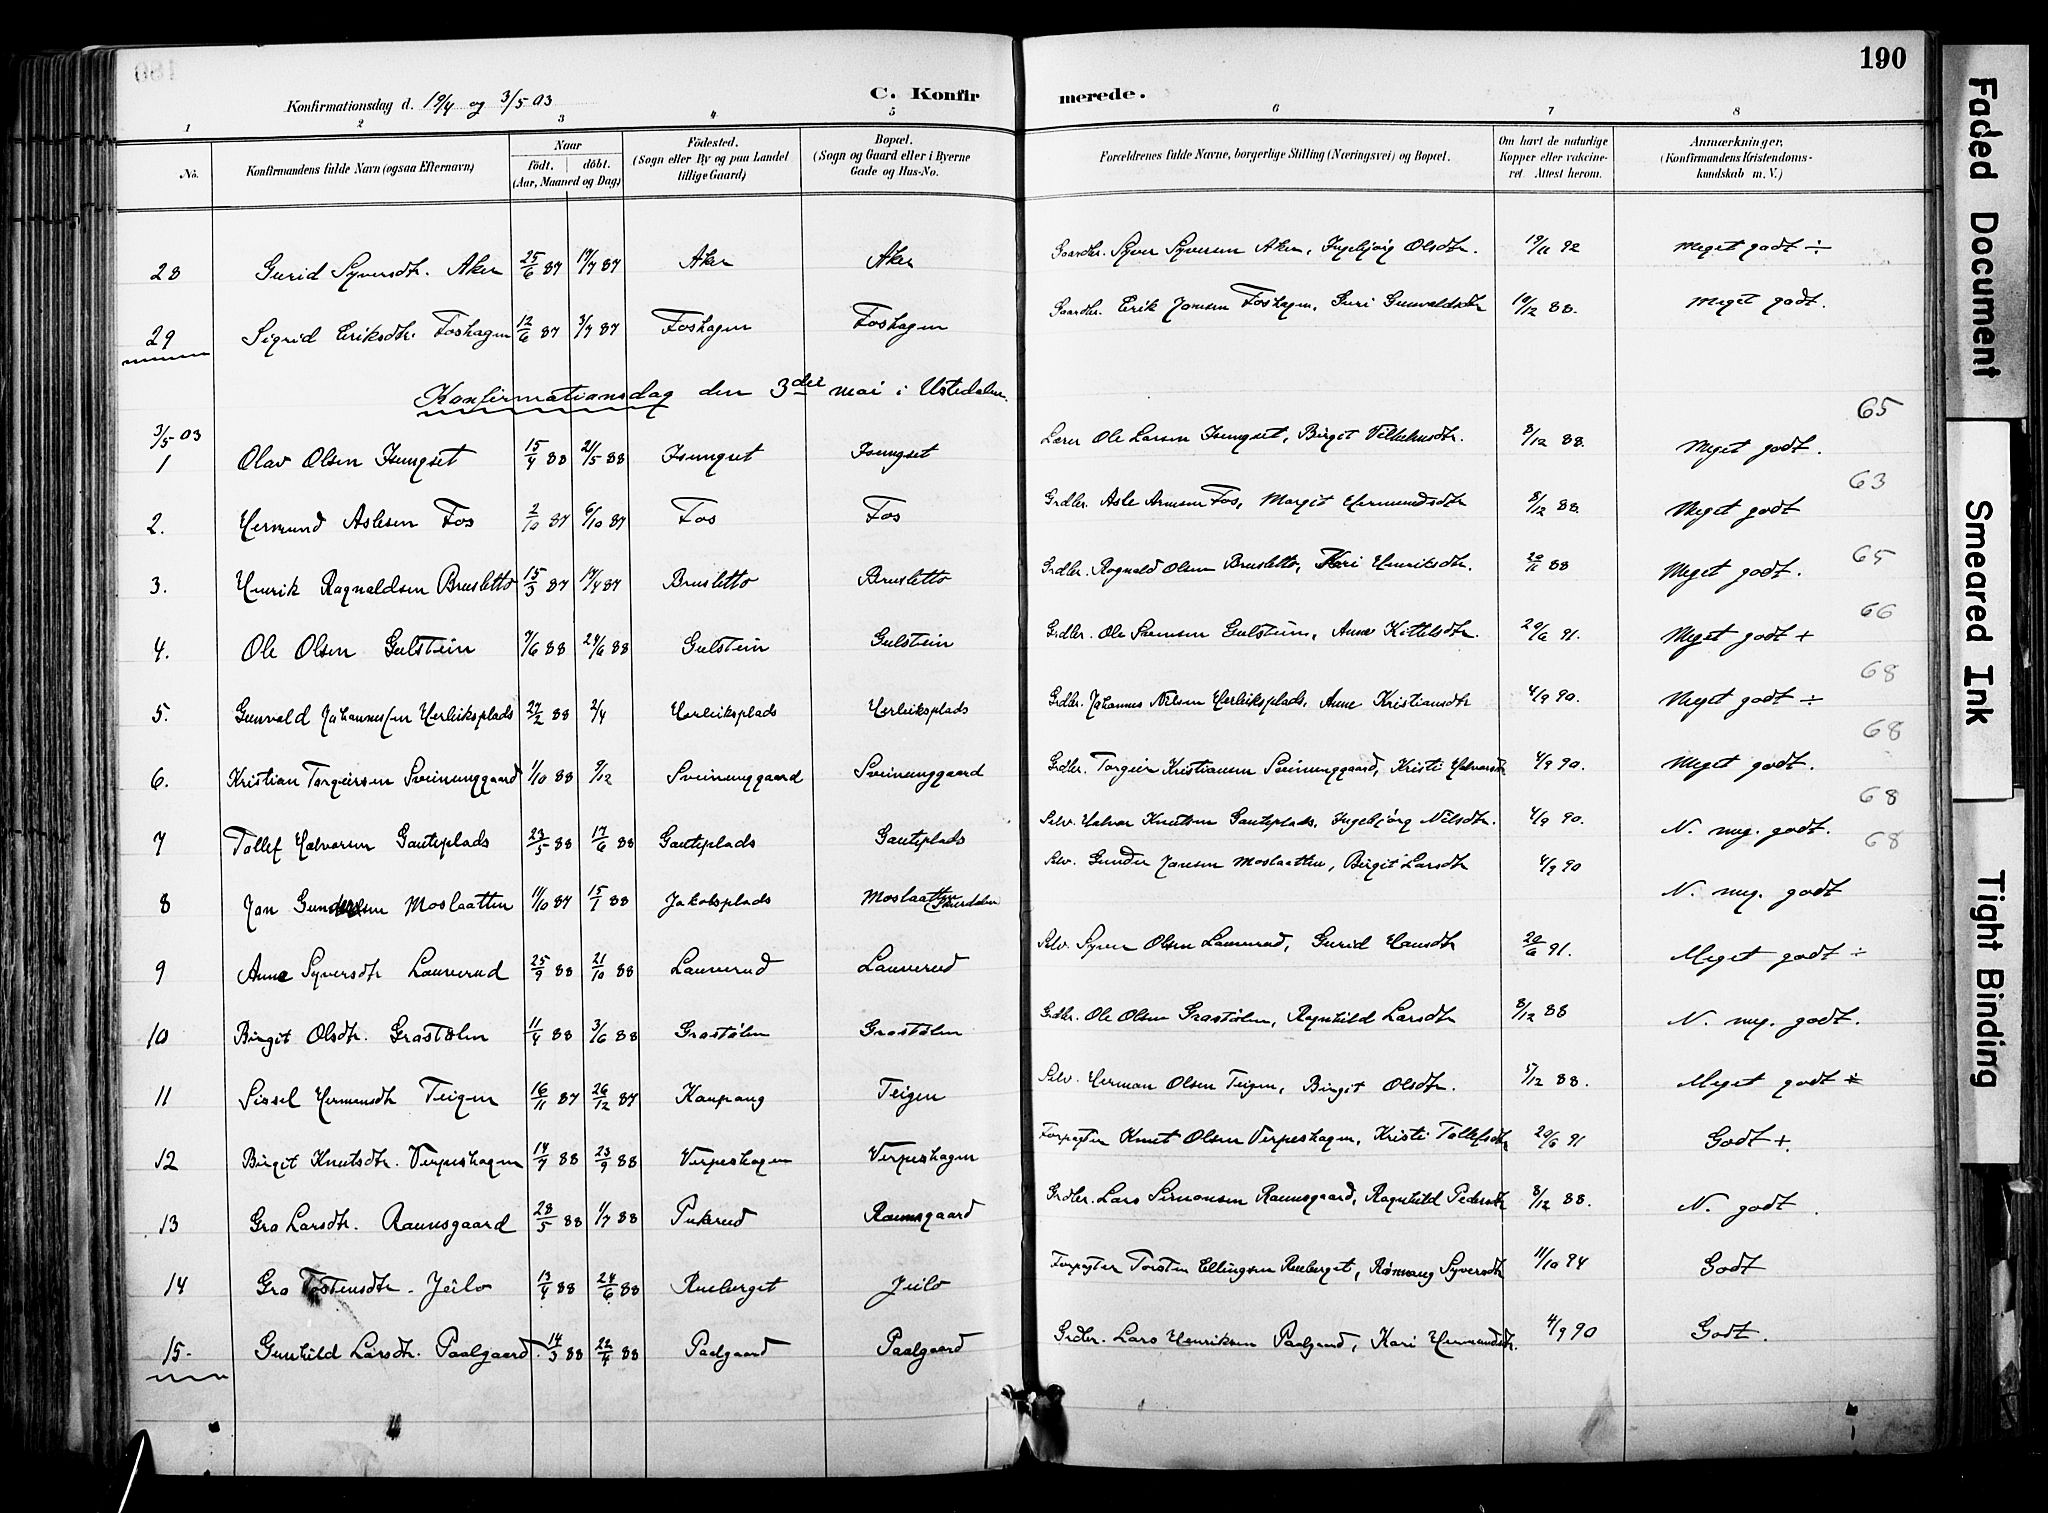 190
Konfirmationsdag d. 19/4 og 3/5 03
C. Konfirmerede.
1 2 3 4 5 6 7 8
No.
Konfirmandens fulde Navn (ogsaa Efternavn)
Naar
födt. döbt.
(Aar, Maaned og Dag)
Födested.
(Sogn eller By og paa Landet
tillige Gaard)
Bopæl.
(Sogn og Gaard eller i Byerne
Gade og Hus-No.
Forældrenes fulde Navne, borgerlige Stilling (Næringsvei) og Bopæl.
Om havt de naturlige
Kopper eller vakcine-
ret. Attest herom.
Anmærkninger,
(Konfirmandens Kristendoms-
kundskab m. V.)
28 Gurid Syversdtr. Aker 25/6 87 17/7 87 Aker Aker Gaardbr. Syver Syversen Aker, Ingebjörg Olsdtr. 19/11 92 Meget godt ÷
29 Sigrid Eriksdtr. Foshagen 12/6 87 3/7 87 Foshagen Foshagen Gaardbr. Erik Jonsen Foshagen, Guri Gunvaldsdtr 10/12 88. Meget godt.
Konfirmationsdag den 3die mai i Ustedalen.
65
3/5 03
1 Olav Olsen Isungset 15/4 88 21/5 88 Isungset Isungset Lærer Ole Larsen Isungset, Birgit Villehusdtr. 8/12 88. Meget godt.
63
2. Hermund Aslesen Fos 2/10 87 6/10 87 Fos Fos Grdbr. Asle Arnesen Fos, Margit Hermundsdtr 8/12 88. Meget godt
3. Henrik Ragnaldsen Brusletto 15/3 87 17/4 87 Brusletto Brusletto Grdbr. Ragnald Olsen Brusletto, Kari Henriksdtr. 20/11 88 Meget godt. 65
66
4. Ole Olsen Gulstein 7/6 88 24/6 88 Gulstein Gulstein Grdbr. Ole Gulstein, Anne Kittelsdtr. 20/6 91. Meget godt +
68
5. Gunvald Johannessen Herleiksplads 27/2 88 2/4 Herleiksplads Herleiksplads Grdbr. Johannes Nilsen Herleiksplads, Anne Kristiansdtr 4/9 90. Meget godt ÷
68
6. Kristian Torgeirsen Sveinunggaard 1/10 88 9/12 Sveinunggaard Sveinunggaard Grdbr. Torgeir Kristiansen Sveinunggaard, Kristi Halvorsdtr 4/9 90. Meget godt.
68
7 Tollef Halvorsen Gauteplads 23/5 88 17/6 88 Gauteplads Gauteplads Selv. Halvor Knutsen Gauteplads, Ingebjörg Nilsdtr. 4/9 90. N. meg. godt.
68
8 Jon Gundersen Moslaatten 11/10 87 15/1 88 Jakobsplads Moslaatten Skurdalen Selv. Gunder Jonsen Moslaatten, Birgit Larsdtr 4/9 90 N. meg. godt
9 Anne Syversdtr Lauverud 25/9 88 21/10 88 Lauverud Lauverud Selv. Syver Olsen Lauverud, Gurid Hansdtr 20/6 91. Meget godt ÷
10 Birgit Olsdtr. Grastølen 11/4 88 3/6 88 Grastølen Grastølen Grdbr. Ole Olsen Grastølen, Ragnhild Larsdtr 8/12 88 N. meg. godt.
11 Sissel Hermansdtr Teigen 16/11 87 26/12 87 Kaupang Teigen Selv. Herman Olsen Teigen, Birgit Olsdtr. 8/12 88. Meget godt
12 Birgit Knutsdtr. Verpeshagen 14/7 88 23/9 88 Verpeshagen Verpeshagen Forpagter Knut Olsen Verpeshagen, Kristi Tollefsdtr 20/6 91 Godt +.
13 Gro Larsdtr. Raunsgaard 28/5 88 1/7 88 Pukerud Raunsgaard Grdbr. Lars Simonsen Raunsgaard, Ragnhild Pedersdtr 8/12 88. N. godt.
14 Gro Tostensdtr. Jeilo 13/4 88 24/6 88 Rueberget Jeilo Forpagter Torsten Ellingsen Rueberget, Rönnaug Syversdtr 11/10 94 Godt
15. Gunhild Larsdtr. Paalgaard 14/3 88 22/4 88 Paalgaard Paalgaard Grdbr. Lars Henriksen Paalgaard, Kari Hermundsdtr. 4/9 90 Godt.
Faded Document
Smeared Ink
Tight Binding